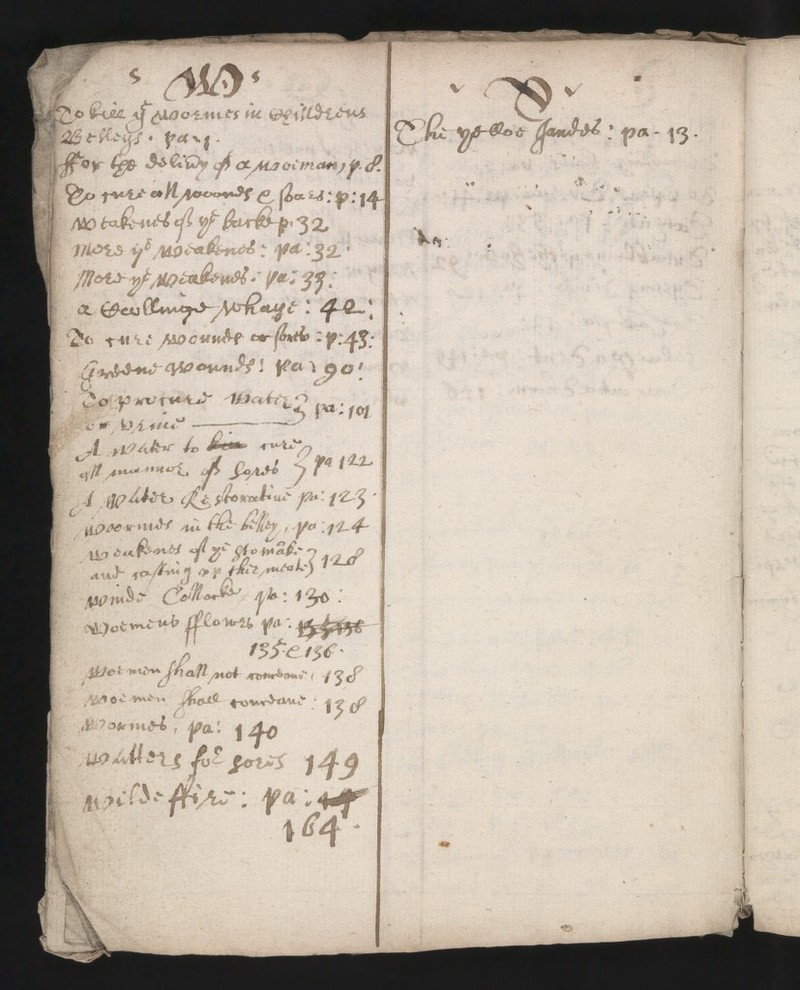 W
To kill ye wormes in Childrens
Belleys. pa. 1.
ffor the delivery of a woeman, p. 8.
To cure all woonds & soars: p: 14
Weakenes of ye backe p. 32
More ye Weakenes: pa: 32
More ye Weakenes: pa: 33:
a Scollinge Whaye: 42:
To cure wounds or sores: p: 43:
Greene Wounds: pa: 90:
To procure Water
or Urine pa: 101
A water to cure
all mannor of sores pa 122
A Water Restorative pa: 123.
Woormes in the belley, pa: 124
Weakenes of ye stomake
and casting up their meate 128
Winde Collocke pa: 130:
Woemens fflowers pa: 135 136
135 & 136.
Woemen shall not conceave: 138
Woemen shall conceave: 138
Wormes, pa: 140
Watters for sores 149
Wilde ffire: pa:
164.
Y
The yelloe Jandes: pa. 13.